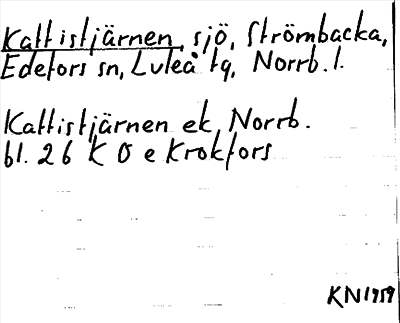 Kattistjärnen, sjö, Strömbacka,
Edefors sn, Luleå tg, Norrb. l.
Kattistjärnen ek, Norrb.
bl. 26 K O e Krokfors
KN 1959